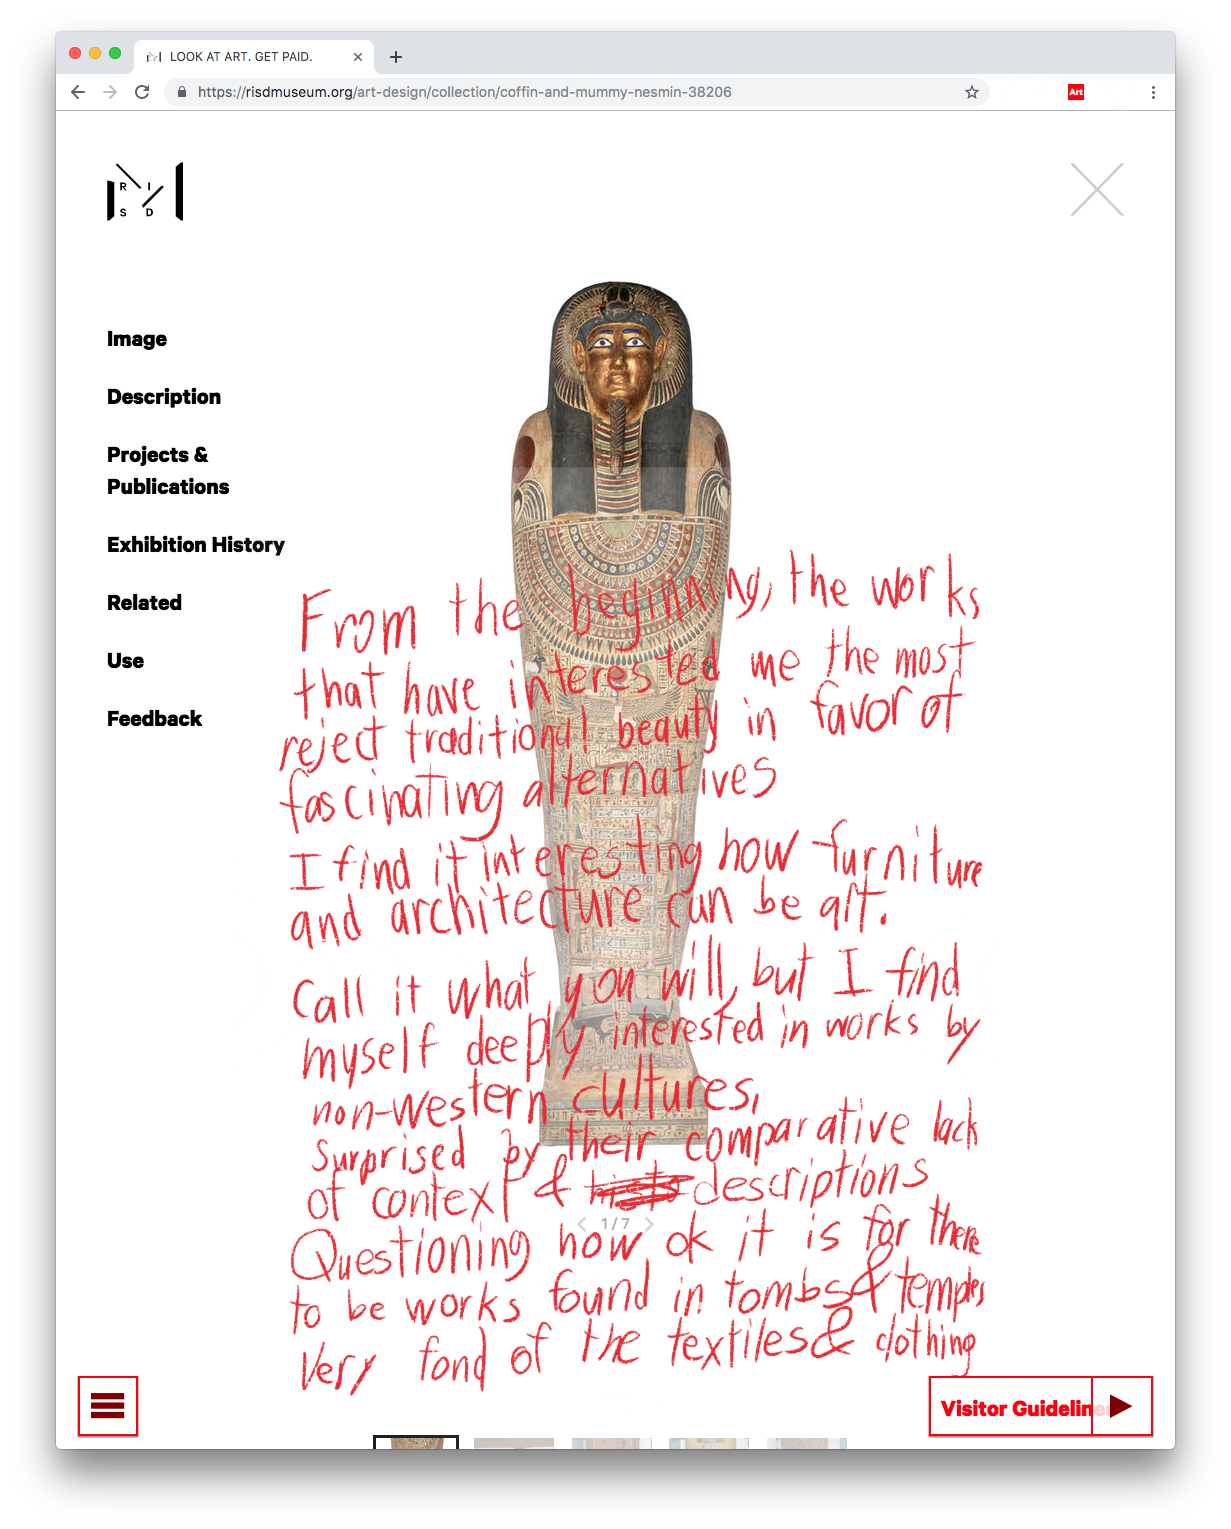 LOOK AT ART. GET PAID.
https://risdmuseum.org/art-design/collection/coffin-and-mummy-nesmin-38206
Art
R I
S D
Image
Description
Projects &
Publications
Exhibition History
Related
Use
Feedback
From the beginning, the works
that have interested me the most
reject traditional beauty in favor of
fascinating alternatives
I find it interesting how furniture
and architecture can be art.
Call it what you will, but I find
myself deeply interested in works by
non-western cultures,
Surprised by their comparative lack
of context & descriptions
1 / 7
Questioning how ok it is for there
to be works found in tombs & temples
Very fond of the textiles & clothing
Visitor Guidelines